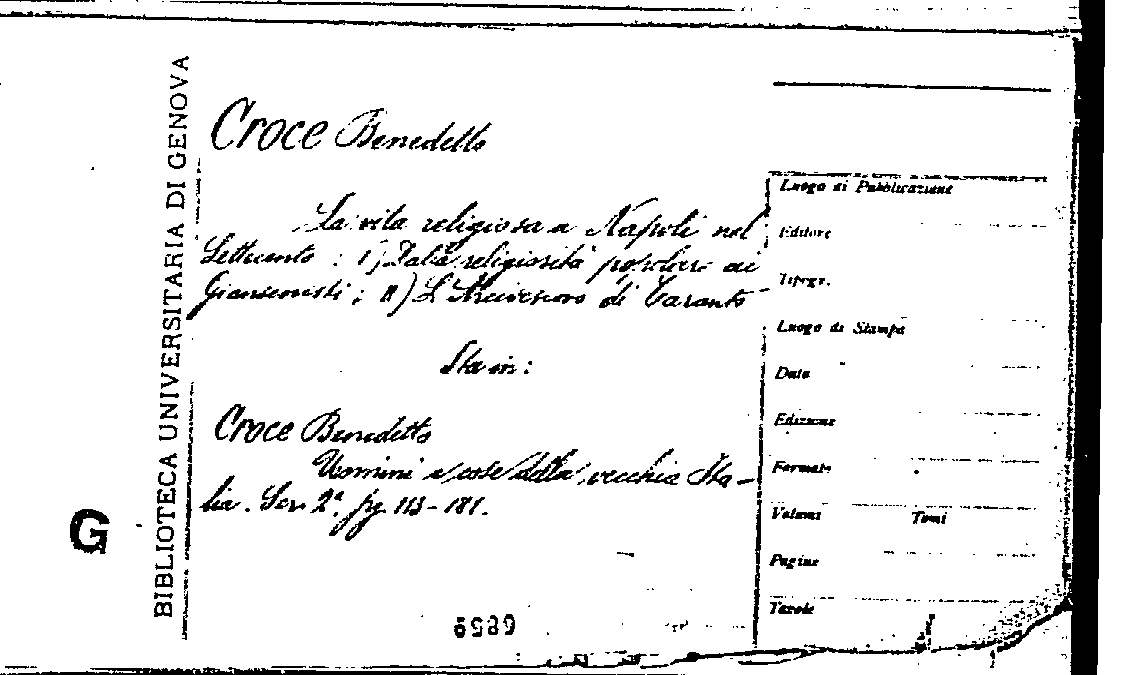 BIBLIOTECA UNIVERSITARIA DI GENOVA
G
Croce Benedetto
La vita religiosa a Napoli nel
Settecento : I) Dalla religiosità popolare ai
Giansenisti ; II) L'Arcivescovo di Taranto
Sta in :
Croce Benedetto
Uomini e cose della vecchia Ita-
lia. Ser. 2ª. pg. 113-181.
Luogo di Pubblicazione
Editore
Tipogr.
Luogo di Stampa
Data
Edizione
Formato
Volumi Tomi
Pagine
Tavole